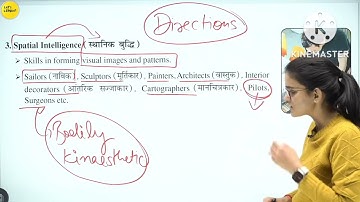 LET'S LEARN
Directions
KINEMASTER
3. Spatial Intelligence (स्थानिक बुद्धि)
Skills in forming visual images and patterns.
Sailors (नाविक), Sculptors (मूर्तिकार), Painters, Architects (वास्तुक), Interior
decorators (आंतरिक सज्जाकार), Cartographers (मानचित्रकार), Pilots,
Surgeons etc.
Bodily
Kinaesthetic